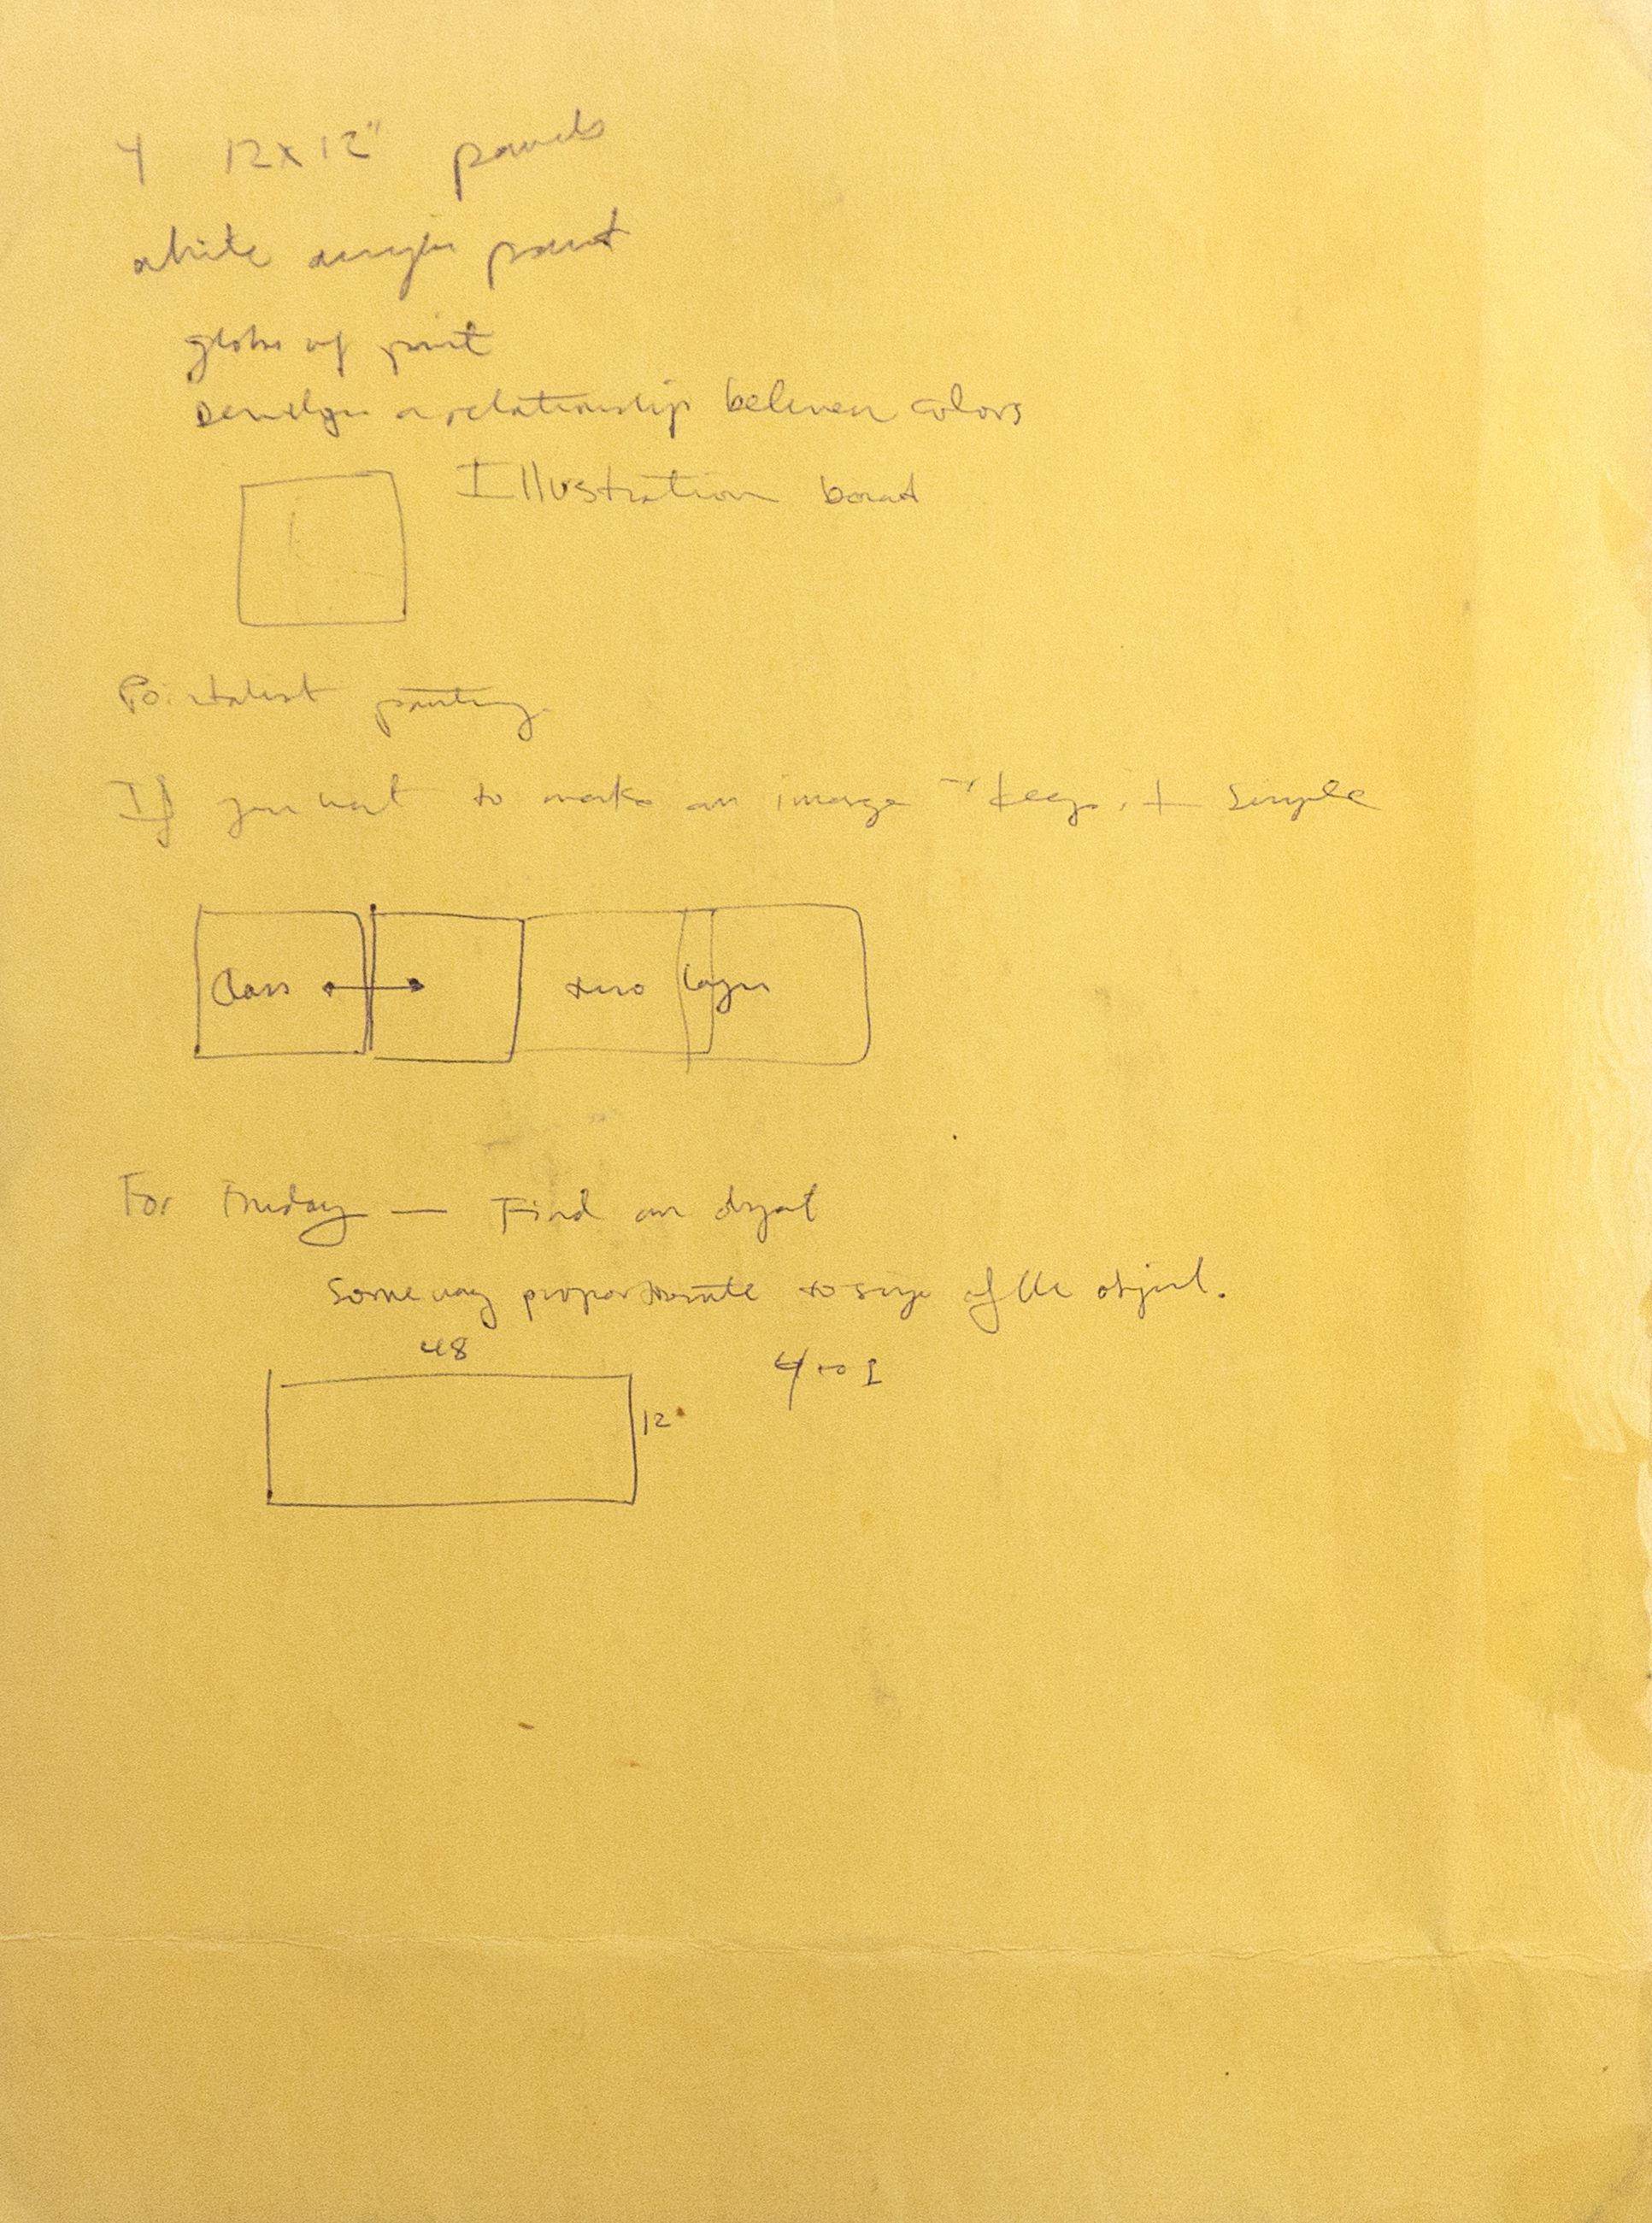 4 12x12" panels
white acrylic paint
globs of paint
Develop a relationship between colors
Illustration board
Pointalist painting
If you want to make an image - keep it simple
Class
layer
For Friday — Find an object
Some way proportionate to size of the object.
48
4 to 1
12